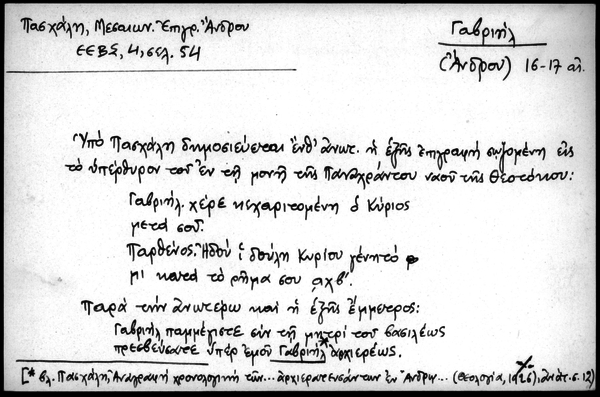 Πασχάλη, Μεσαιων. Ἐπιγρ. Ἄνδρου
ΕΕΒΣ, 4, σελ. 54
Γαβριήλ
(Ἄνδρου) 16-17 αἰ.
Ὑπό Πασχάλη δημοσιεύεται ἔνθ' ἀνωτ. ἡ ἑξῆς ἐπιγραφή σωζομένη εἰς
τό ὑπέρθυρον τοῦ ἐν τῇ μονῇ τῆς Παναχράντου ναοῦ τῆς Θεοτόκου:
Γαβριήλ. χέρε κεχαριτομένη ὁ Κύριος
μετά σοῦ.
Παρθένος. Ἠδού ἱ δούλη Κυρίου γένητό
μι κατά τό ρῆμα σου ͵αχβ'.
Παρά τήν ἀνωτέρω καί ἡ ἑξῆς ἔμμετρος:
Γαβριήλ παμμέγιστε σύν τῇ μητρί τοῦ βασιλέως
πρεσβεύσατε ὑπέρ ἐμοῦ Γαβριήλ* ἀρχιερέως.
[* βλ. Πασχάλη, Ἀναγραφή χρονολογική τῶν... ἀρχιερατευσάντων ἐν Ἄνδρῳ... (Θεολογία, 1926), ἀνάτ. σ. 12)